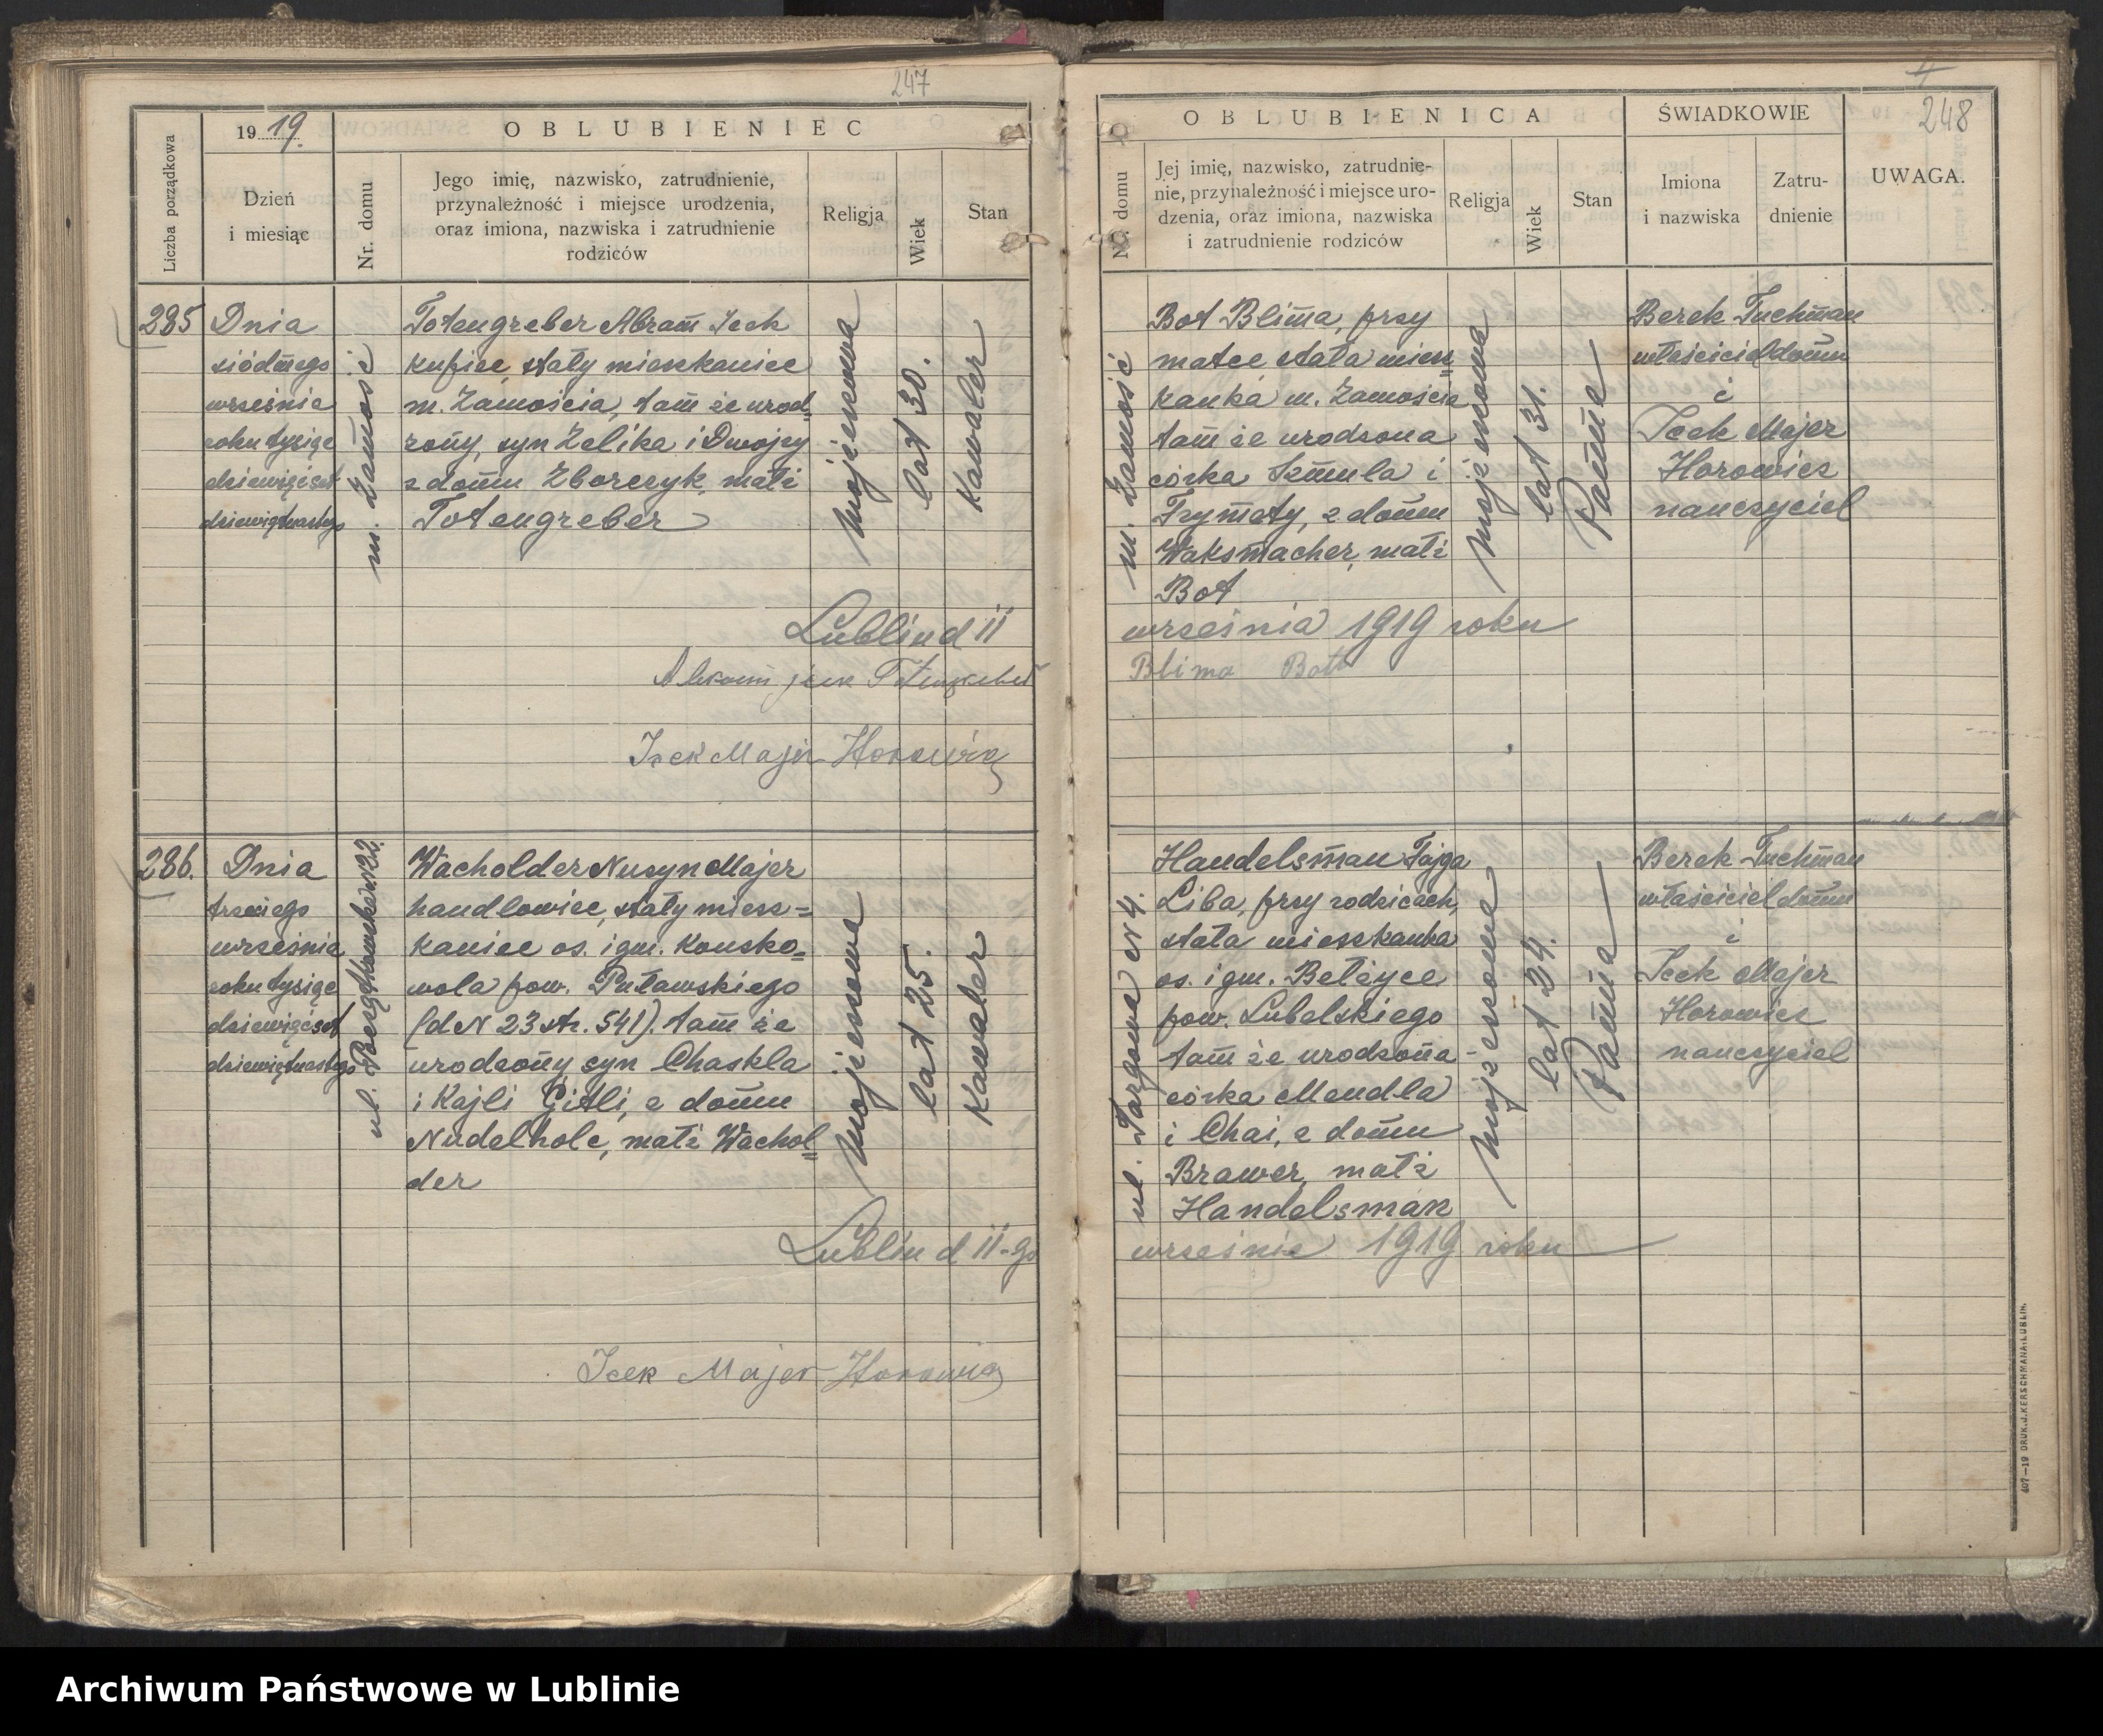 247
19 19.
OBLUBIENIEC
Liczba porządkowa
Dzień
i miesiąc
Nr. domu
Jego imię, nazwisko, zatrudnienie,
przynależność i miejsce urodzenia,
oraz imiona, nazwiska i zatrudnienie
rodziców
Religja
Wiek
Stan
285
Dnia
siódmego
września
roku tysiąc
dziewięćset
dziewiętnastego
m. Zamość
Totengreber Abram Icek
kupiec, stały mieszkaniec
m. Zamościa, tam że urod=
zony, syn Zelika i Dwojry
z domu Zborczyk, małż
Totengreber
mojżeszowa
lat 30.
Kawaler
Lublin d 11
Icek Majer Horowicz
286.
Dnia
trzeciego
września
roku tysiąc
dziewięćset
dziewiętnastego
Wacholder Nusyn Majer
handlowiec, stały miesz=
kaniec os. i gm. Końsko=
wola pow. Puławskiego
(d N 23 str. 541). tam że
urodzony syn Chaskla
i Kajli Gitli, z domu
Nudelholc, małż Wachol=
der
mojżeszowa
lat 25.
Kawaler
Lublin d 11-go
Icek Majer Horowicz
248
OBLUBIENICA
ŚWIADKOWIE
UWAGA.
Nr. domu
Jej imię, nazwisko, zatrudnie-
nie, przynależność i miejsce uro-
dzenia, oraz imiona, nazwiska
i zatrudnienie rodziców
Religja
Wiek
Stan
Imiona
i nazwiska
Zatru-
dnienie
m. Zamość
Bot Blima, przy
matce stała miesz=
kanka m. Zamościa
tam że urodzona
córka Szmula i
Frymety, z domu
Waksmacher, małż
Bot
mojżeszowa
lat 31.
Panna
Berek Tuchman
właściciel domu
i
Icek Majer
Horowicz
nauczyciel
września 1919 roku
Blima Bot
ul. Targowa N 4.
Handelsman Fajga
Liba, przy rodzicach,
stała mieszkanka
os. i gm. Bełżyce
pow. Lubelskiego
tam że urodzona -
córka Mendla
i Chai, z domu
Brawer, małż
Handelsman
mojżeszowa
lat 24.
Panna
Berek Tuchman
właściciel domu
i
Icek Majer
Horowicz
nauczyciel
września 1919 roku
407—19 DRUK.J.KERSCHMANA.LUBLIN.
Archiwum Państwowe w Lublinie